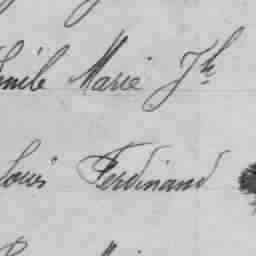 Emile Marie Jh
Louis Ferdinand